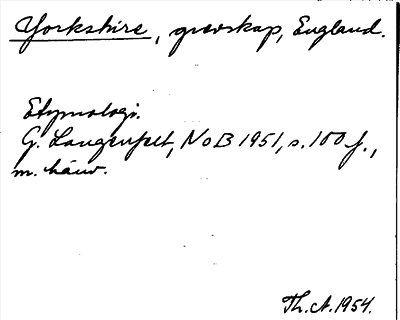 Yorkshire, grevskap, England.
Etymologi.
G. Langenfelt, NoB 1951, s. 100 f.,
m. hänv.
Th. A. 1954.